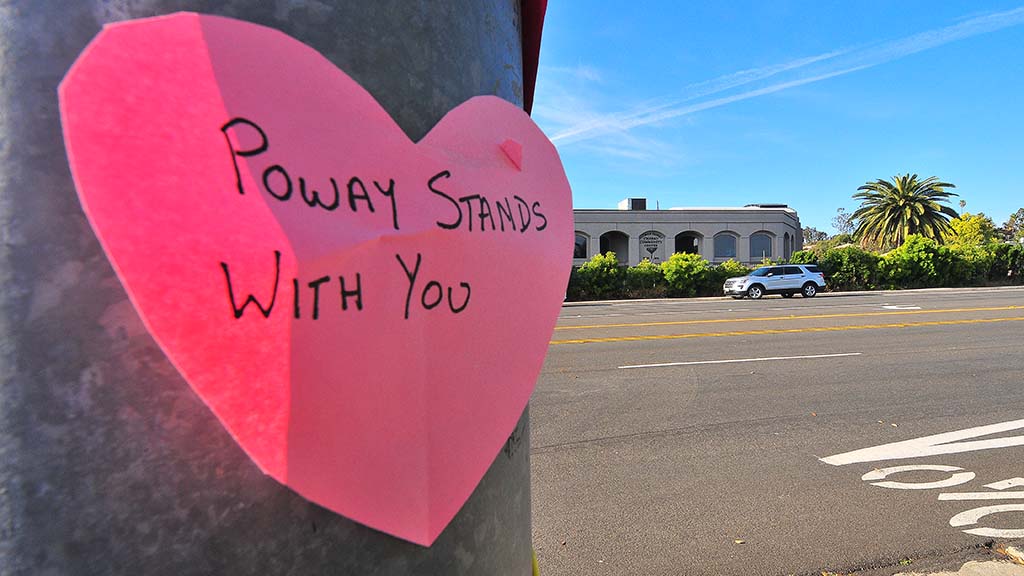 Poway Stands
With You